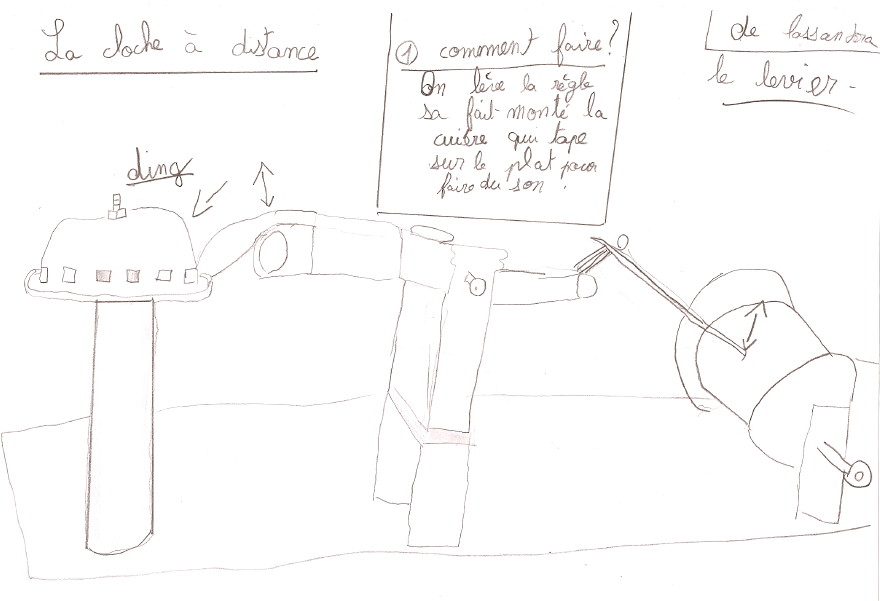 La cloche à distance
1 comment faire?
On lève la règle
sa fait monté la
cuière qui tape
sur le plat pour
faire du son.
de Cassandra
le levier.
ding